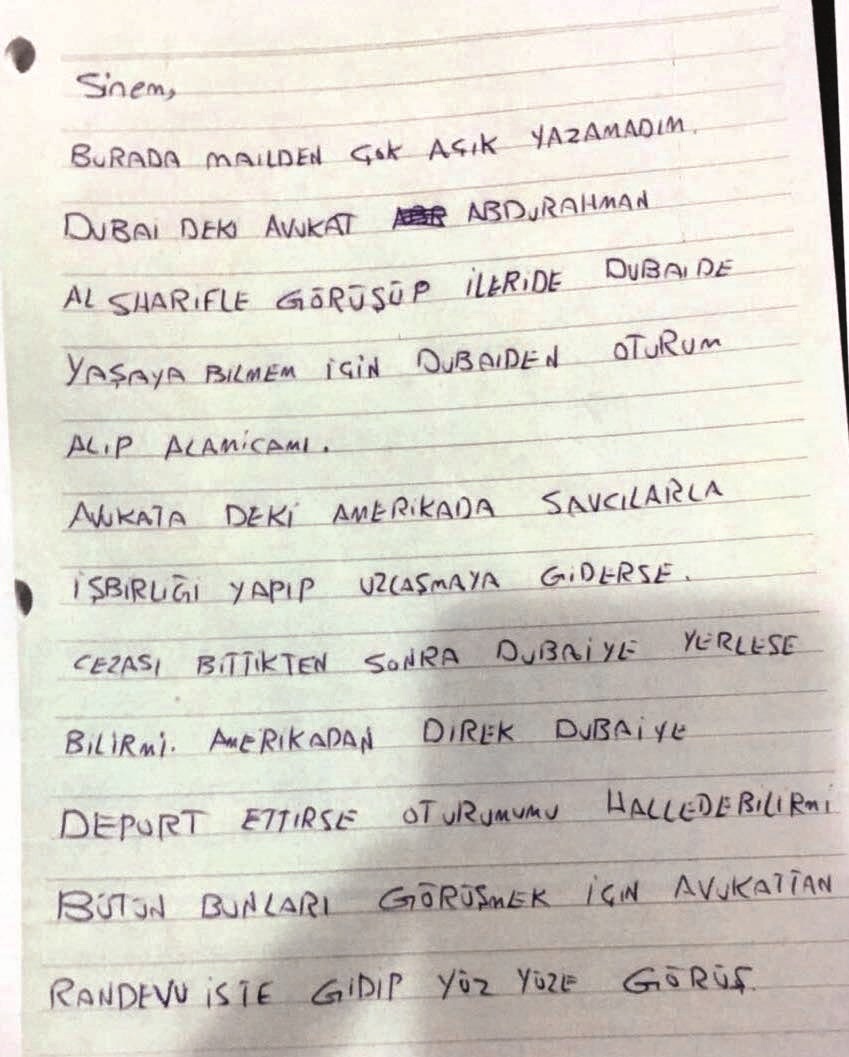 Sinem,
BURADA MAILDEN ÇOK AÇIK YAZAMADIM.
DUBAI DEKI AVUKAT ABDURAHMAN
AL SHARIFLE GÖRÜŞÜP İLERİDE DUBAIDE
YAŞAYA BILMEM İÇİN DUBAIDEN OTURUM
ALIP ALAMİCAMI.
AVUKATA DEKİ AMERİKADA SAVCILARLA
İŞBIRLIĞI YAPIP UZLAŞMAYA GİDERSE.
CEZASI BİTTIKTEN SONRA DUBAİYE YERLESE
BİLİRMİ. AMERIKADAN DIREK DUBAİYE
DEPORT ETTIRSE OTURUMUMU HALLEDEBILIRMI
BÜTÜN BUNLARI GÖRÜŞMEK İÇIN AVUKATTAN
RANDEVU İSTE GİDIP YÜZ YÜZE GÖRÜŞ.